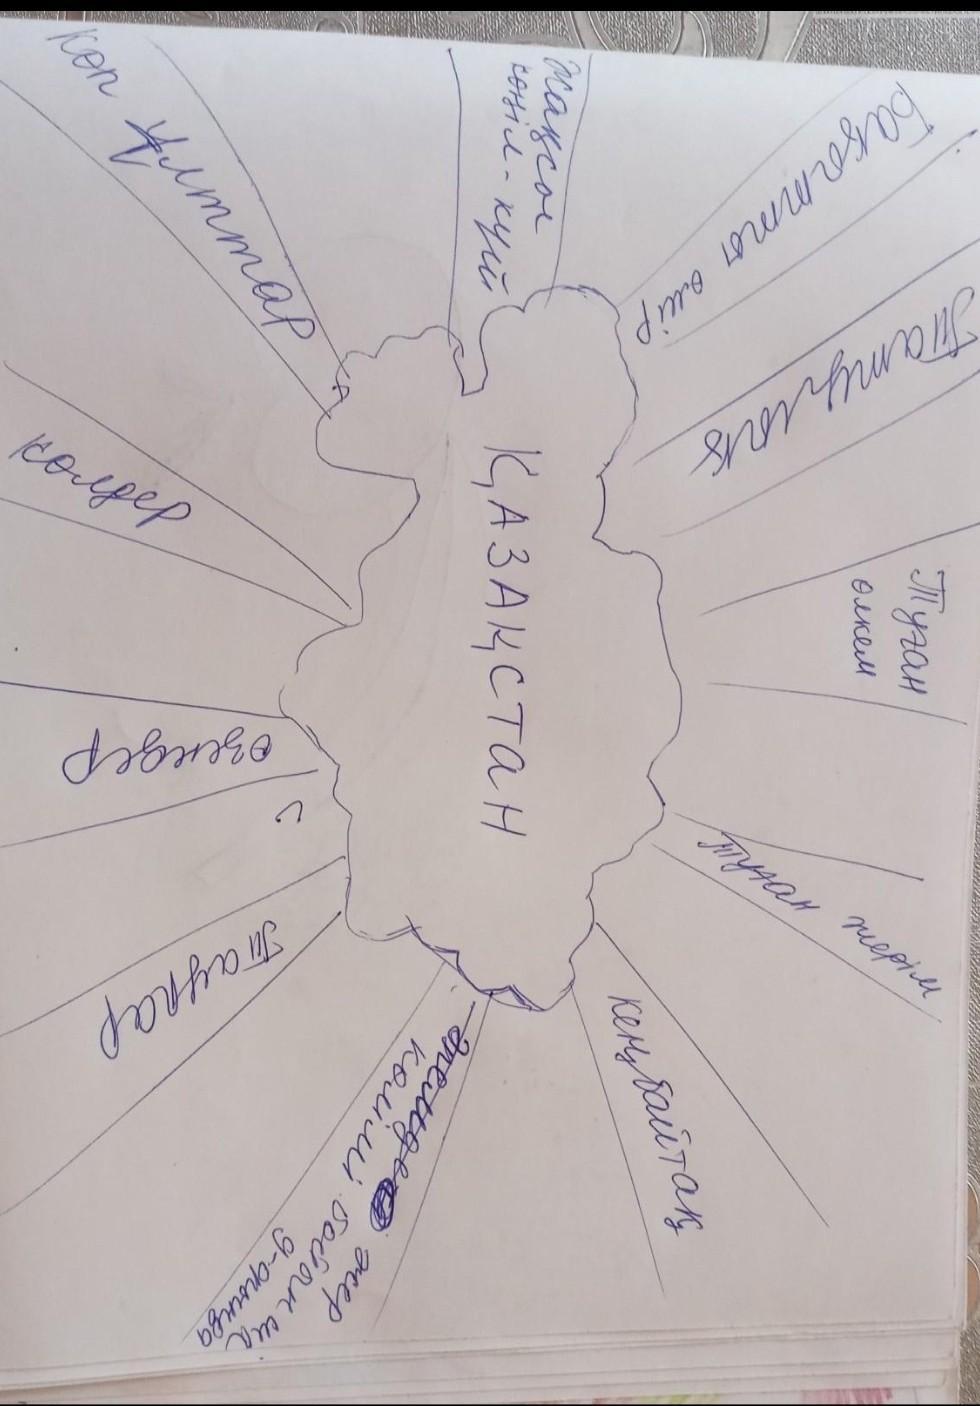 ҚАЗАҚСТАН
Көп ұлттар
Жақсы
көңіл-күй
Бақытты өмір
Татулық
Туған
өлкем
Туған жерім
кең байтақ
жер
көлемі бойынша
9-орында
Таулар
өзендер
көлдер